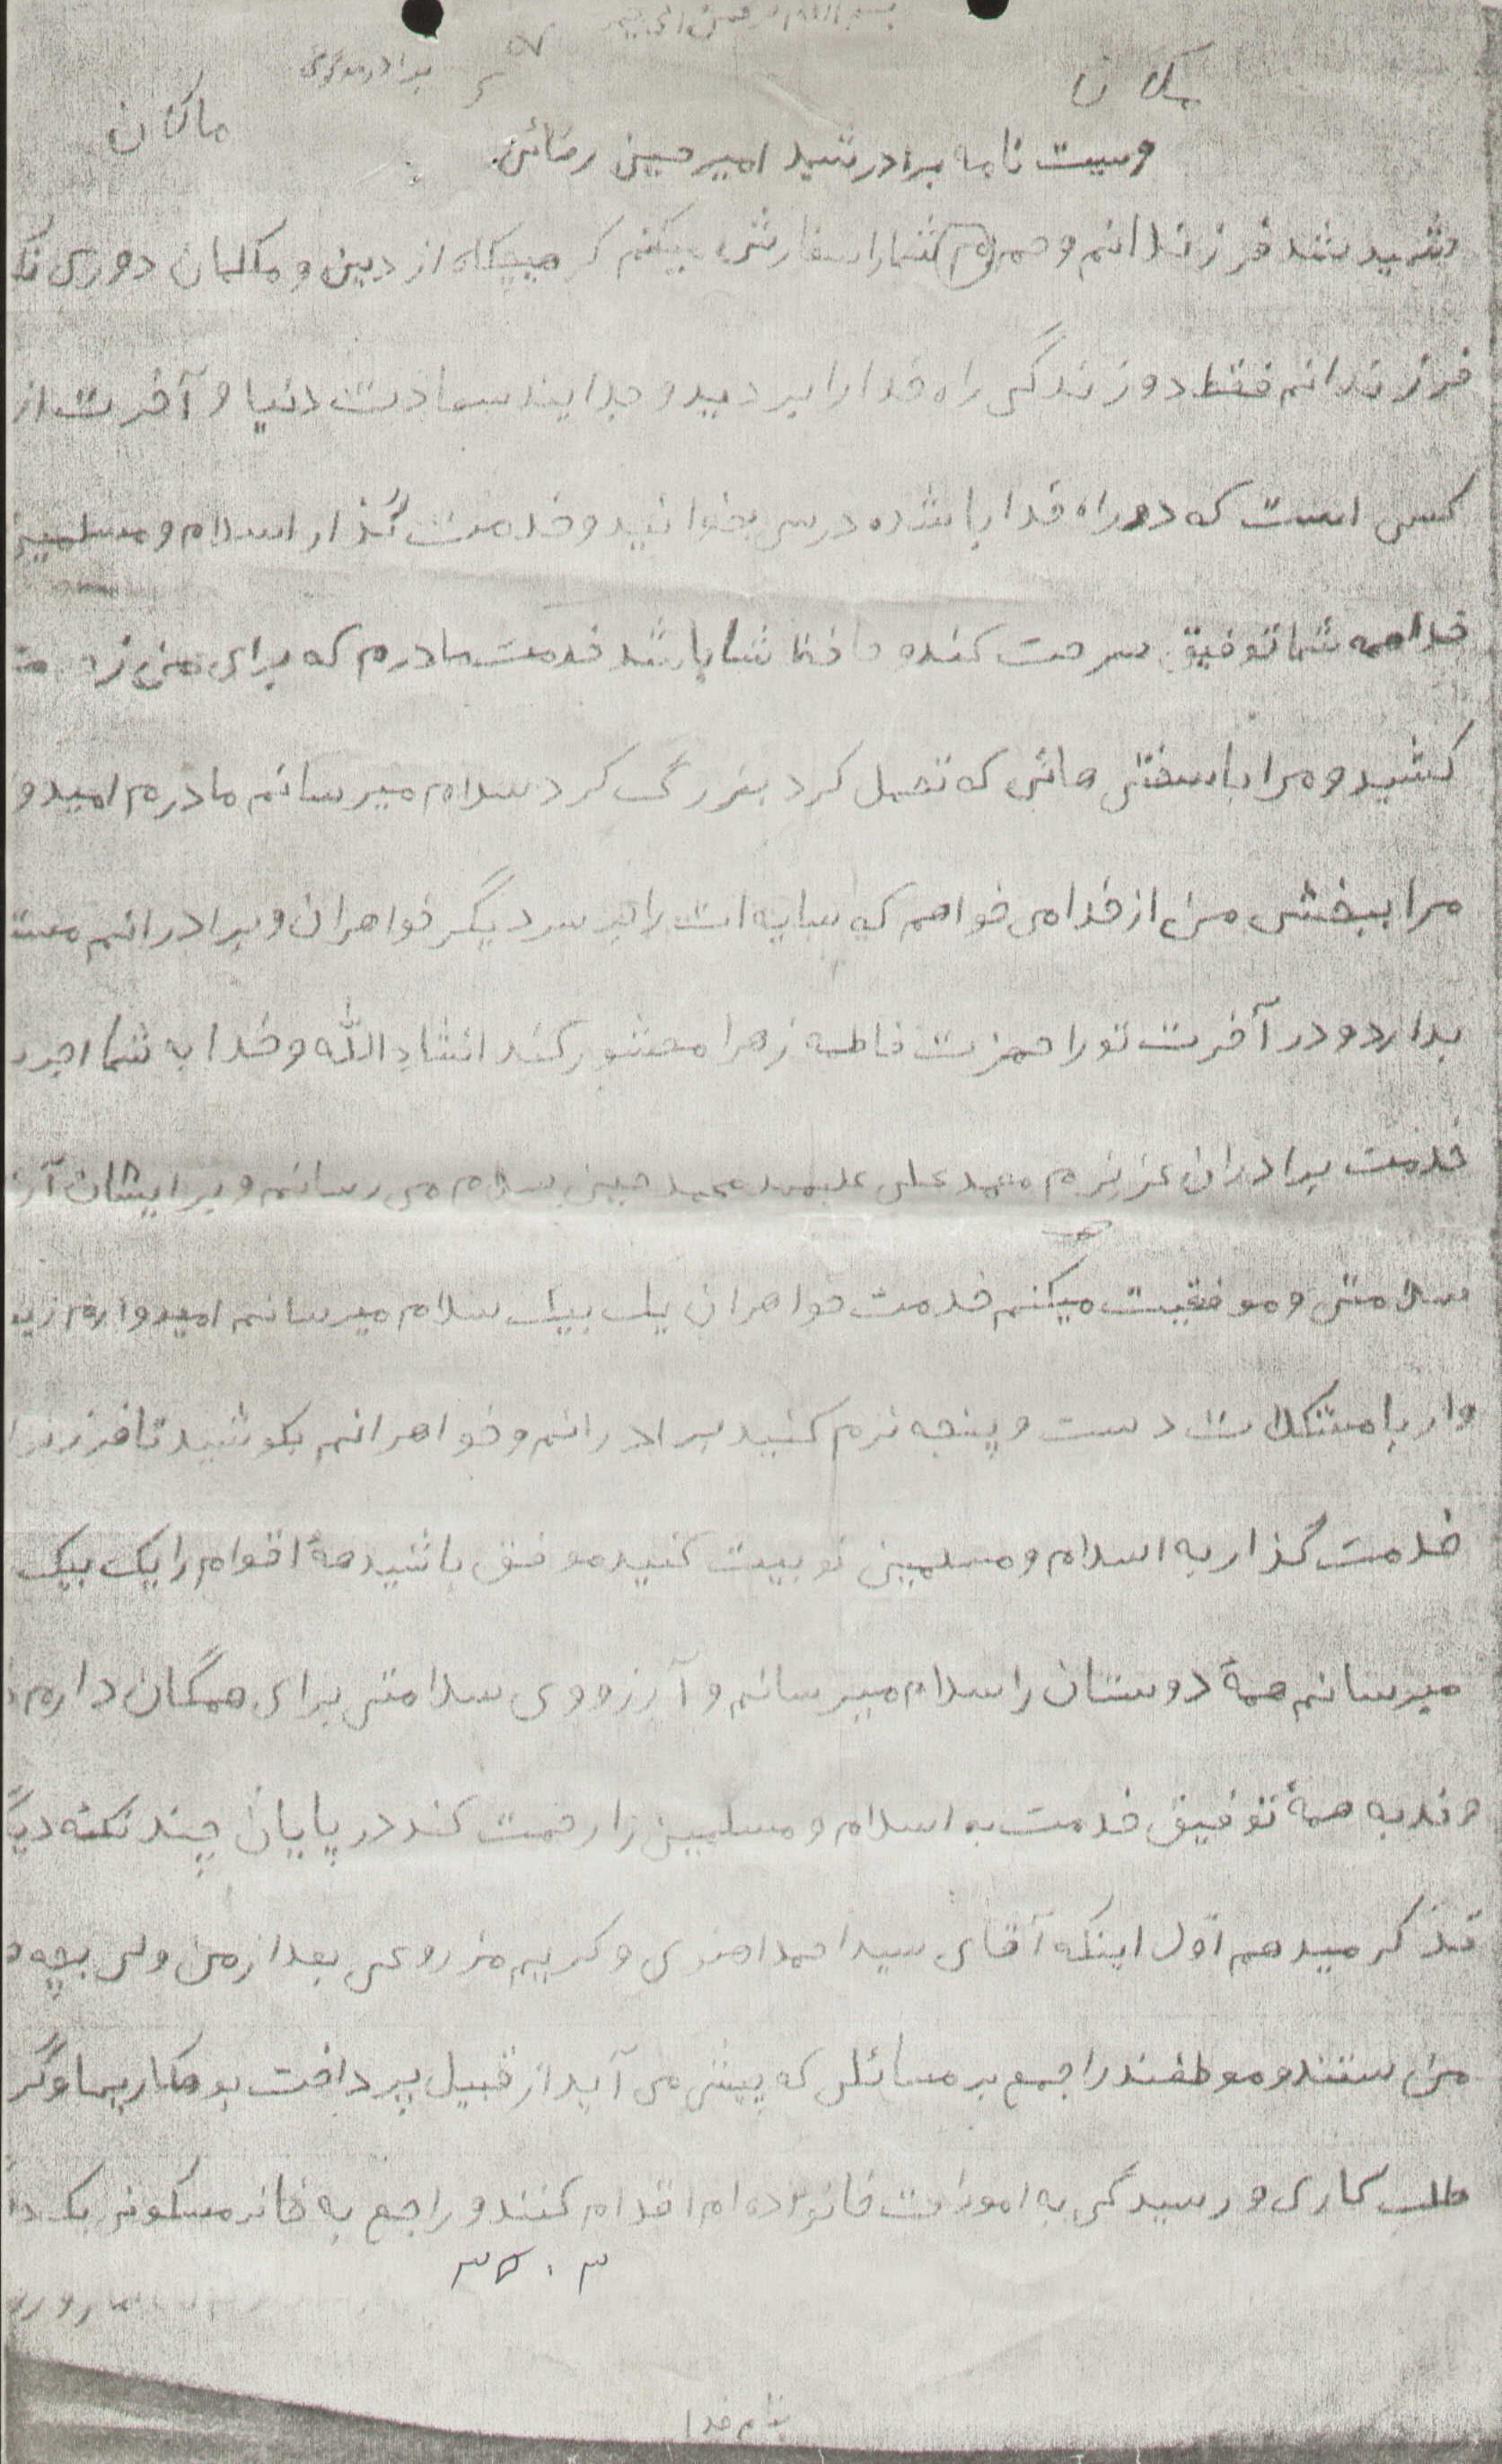 بسم الله الرحمن الرحیم
ماکان
وصیت نامه برادر شهید امیر حسین رضائی
شهید شد فرزندانم و همسرم شما را سفارش میکنم که هیچگاه از دین و مکتبتان دوری
فرزندانم فقط دو زندگی راه خدا را بر دید و جدایند سعادت دنیا و آخرت از
کسی است که در راه خدا باشد درس بخوانید و خدمت گذار اسلام و مسلمین
خدا همه شما توفیق مرحمت کند و حافظ شما باشد خدمت مادرم که برای من
کشید و مرا با سختی هائی که تحمل کرد بزرگ کرد سلام میرسانم مادرم امیدو
مرا ببخشی من از خدا می خواهم که سایه ات را بر سر دیگر خواهران و برادرانم
بدارد و در آخرت تو را حضرت فاطمه زهرا محشور کند انشاء الله و خدا به شما اجر
خدمت برادران عزیزم محمد علی محمد حسین سلام می رسانم و برایشان
سلامتی و موفقیت میکنم خدمت خواهران یک بیک سلام میرسانم امیدوارم
وار با مشکلات دست و پنجه نرم کنید برادرانم و خواهرانم بکوشید تا
خدمت گذار به اسلام و مسلمین تربیت کنید موفق باشید همهٔ اقوام را یک بیک
میرسانم همهٔ دوستان را سلام میرسانم و آرزووی سلامتی برای همگان دارم
به همهٔ توفیق خدمت به اسلام و مسلمین را رحمت کند در پایان چند نکته
تذکر میدهم اول اینکه آقای سید احمد و کریم مزروعی بعد از من ولی بچه
من ستند و موظفند راجع بر مسائلی که پیش می آید از قبیل پرداخت
طلب کاری و رسیدگی به امورات خانواده ام اقدام کنند و راجع به خانه مسکونه یک
بنام خدا